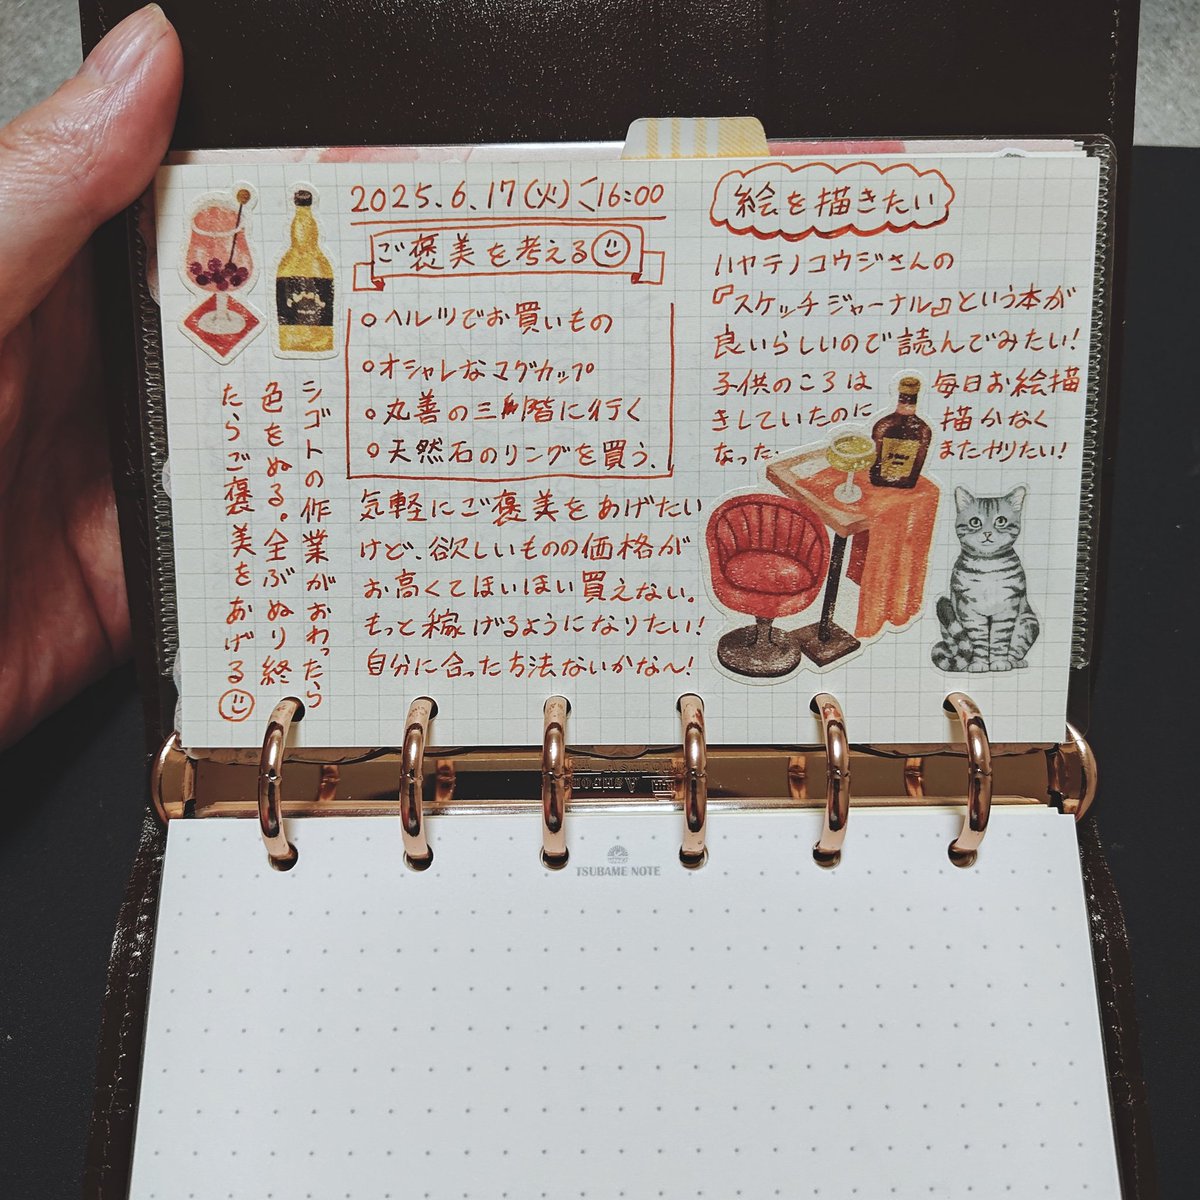 2025.6.17(火)〜16:00
ご褒美を考える
○ヘルツでお買いもの
○オシャレなマグカップ
○丸善の三階に行く
○天然石のリングを買う.
気軽にご褒美をあげたい
けど、欲しいものの価格が
お高くてほいほい買えない。
もっと稼げるようになりたい!
自分に合った方法ないかな〜!
シゴトの作業がおわったら
色をぬる。全ぶぬり終
たらご褒美をあげる
絵を描きたい
ハヤテノコウジさんの
『スケッチジャーナル』という本が
良いらしいので読んでみたい!
子供のころは 毎日お絵描
きしていたのに 描かなく
なった. またやりたい!
TSUBAME NOTE